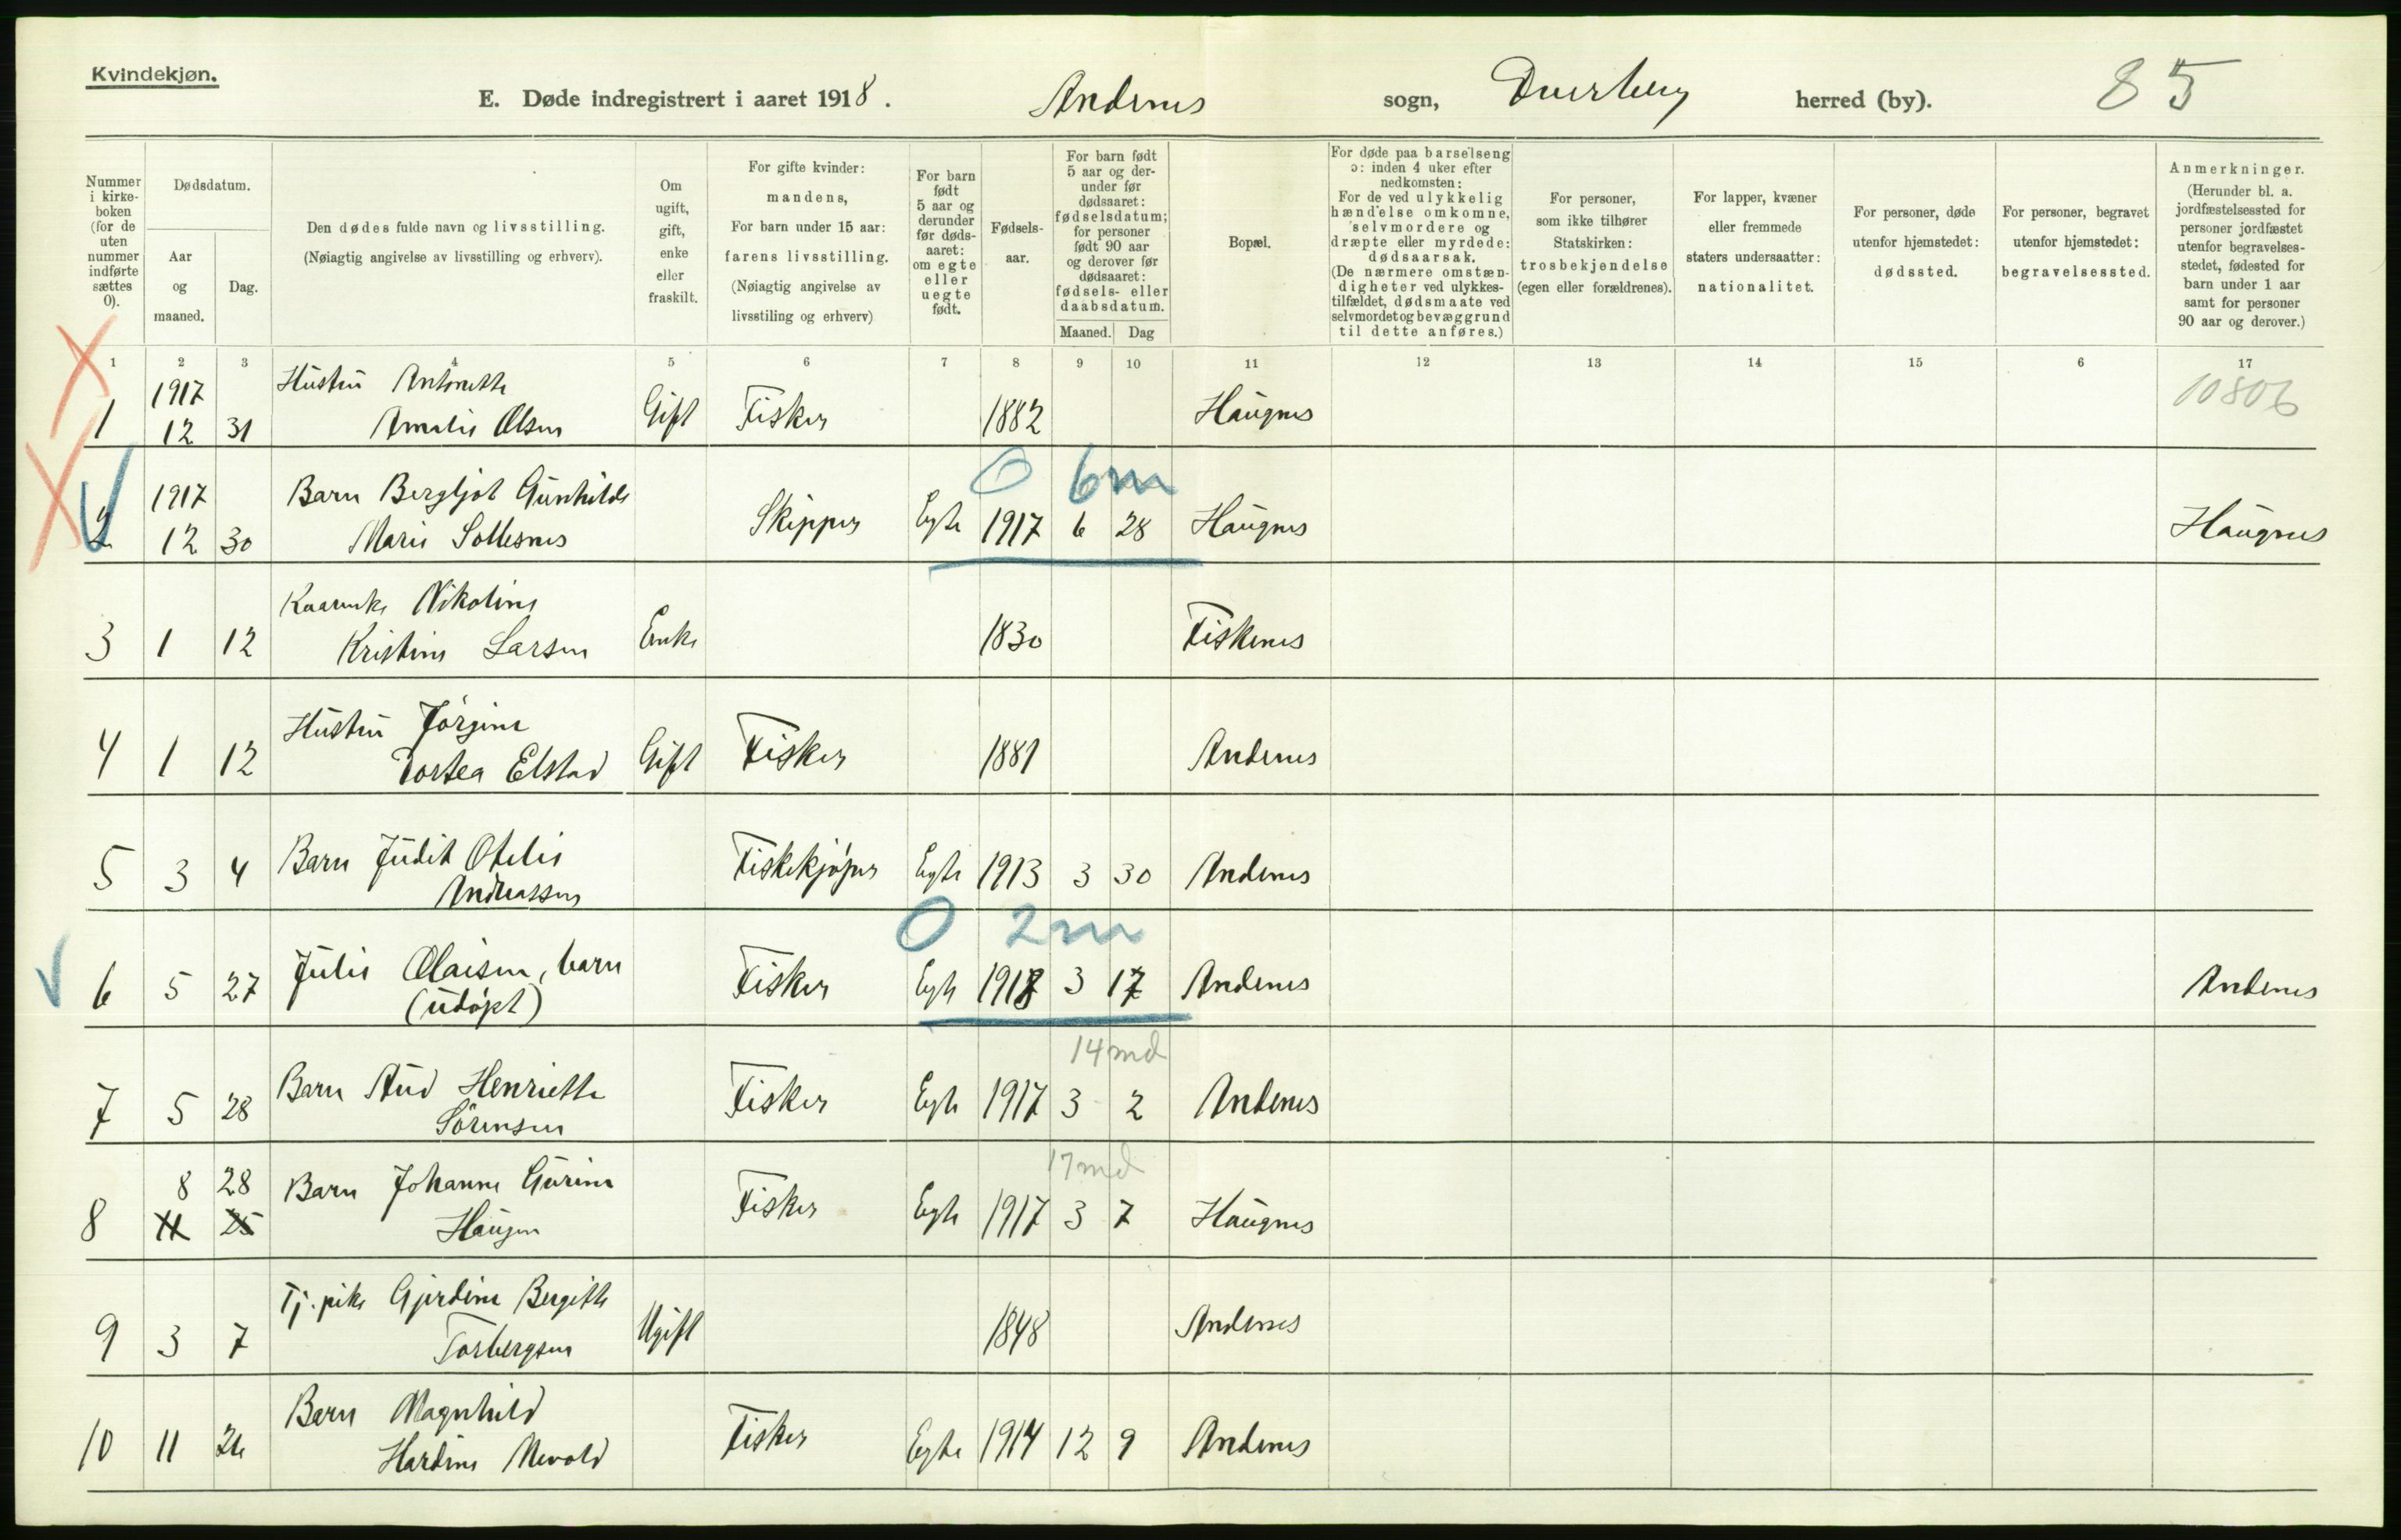 Kvindekjøn.
E. Døde indregistrert i aaret 1918. Andenes sogn, Dverberg herred (by). 85
Nummer i kirkeboken (for de uten nummer indførte sættes 0).
Dødsdatum.
Aar og maaned.
Dag.
Den dødes fulde navn og livsstilling.
(Nøiagtig angivelse av livsstilling og erhverv).
Om ugift, gift, enke eller fraskilt.
For gifte kvinder: mandens,
For barn under 15 aar: farens livsstilling.
(Nøiagtig angivelse av livsstiling og erhverv)
For barn født 5 aar og derunder før dødsaaret: om egte eller uegte født.
Fødselsaar.
For barn født 5 aar og derunder før dødsaaret: fødselsdatum; for personer født 90 aar og derover før dødsaaret: fødsels- eller daabsdatum.
Maaned. Dag
Bopæl.
For døde paa barselseng ɔ: inden 4 uker efter nedkomsten:
For de ved ulykkelig hændelse omkomne, selvmordere og dræpte eller myrdede: dødsaarsak.
(De nærmere omstændigheter ved ulykkestilfældet, dødsmaate ved selvmordet og bevæggrund til dette anføres.)
For personer, som ikke tilhører Statskirken: trosbekjendelse (egen eller forældrenes).
For lapper, kvæner eller fremmede staters undersaatter: nationalitet.
For personer, døde utenfor hjemstedet: dødssted.
For personer, begravet utenfor hjemstedet: begravelsessted.
Anmerkninger.
(Herunder bl. a. jordfæstelsessted for personer jordfæstet utenfor begravelsesstedet, fødested for barn under 1 aar samt for personer 90 aar og derover.)
1 2 3 4 5 6 7 8 9 10 11 12 13 14 15 6 17
1917 Hustru Antonette 10806
1 12 31 Amalie Olsen Gift Fisker 1882 Haugnes
0 6m
1917 Barn Bergljot Gunhilde
2 12 30 Marie Sollesnes Skipper Egte 1917 6 28 Haugnes Haugnes
Kaarenke Nikoline
3 1 12 Kristine Larsen Enke 1830 Fiskenes
Hustru Jørgine
4 1 12 Dortea Elstad Gift Fisker 1881 Andenes
Barn Judit Otelie
5 3 4 Andreassen Fiskekjøper Egte 1913 3 30 Andenes
0 2m
Julie Olaisen, barn
6 5 27 (udøpt) Fisker Egte 1918 3 17 Andenes Andenes
14 md
Barn Aud Henriette
7 5 28 Sörensen Fisker Egte 1917 3 2 Andenes
17 md
8 28 Barn Johanne Gurine
8 11 25 Haugen Fisker Egte 1917 3 7 Haugnes
Tj. pike Gjerdine Bergitte
9 3 7 Torbergsen Ugift 1848 Andenes
Barn Magnhild
10 11 26 Hardine Nevold Fisker Egte 1914 12 9 Andenes